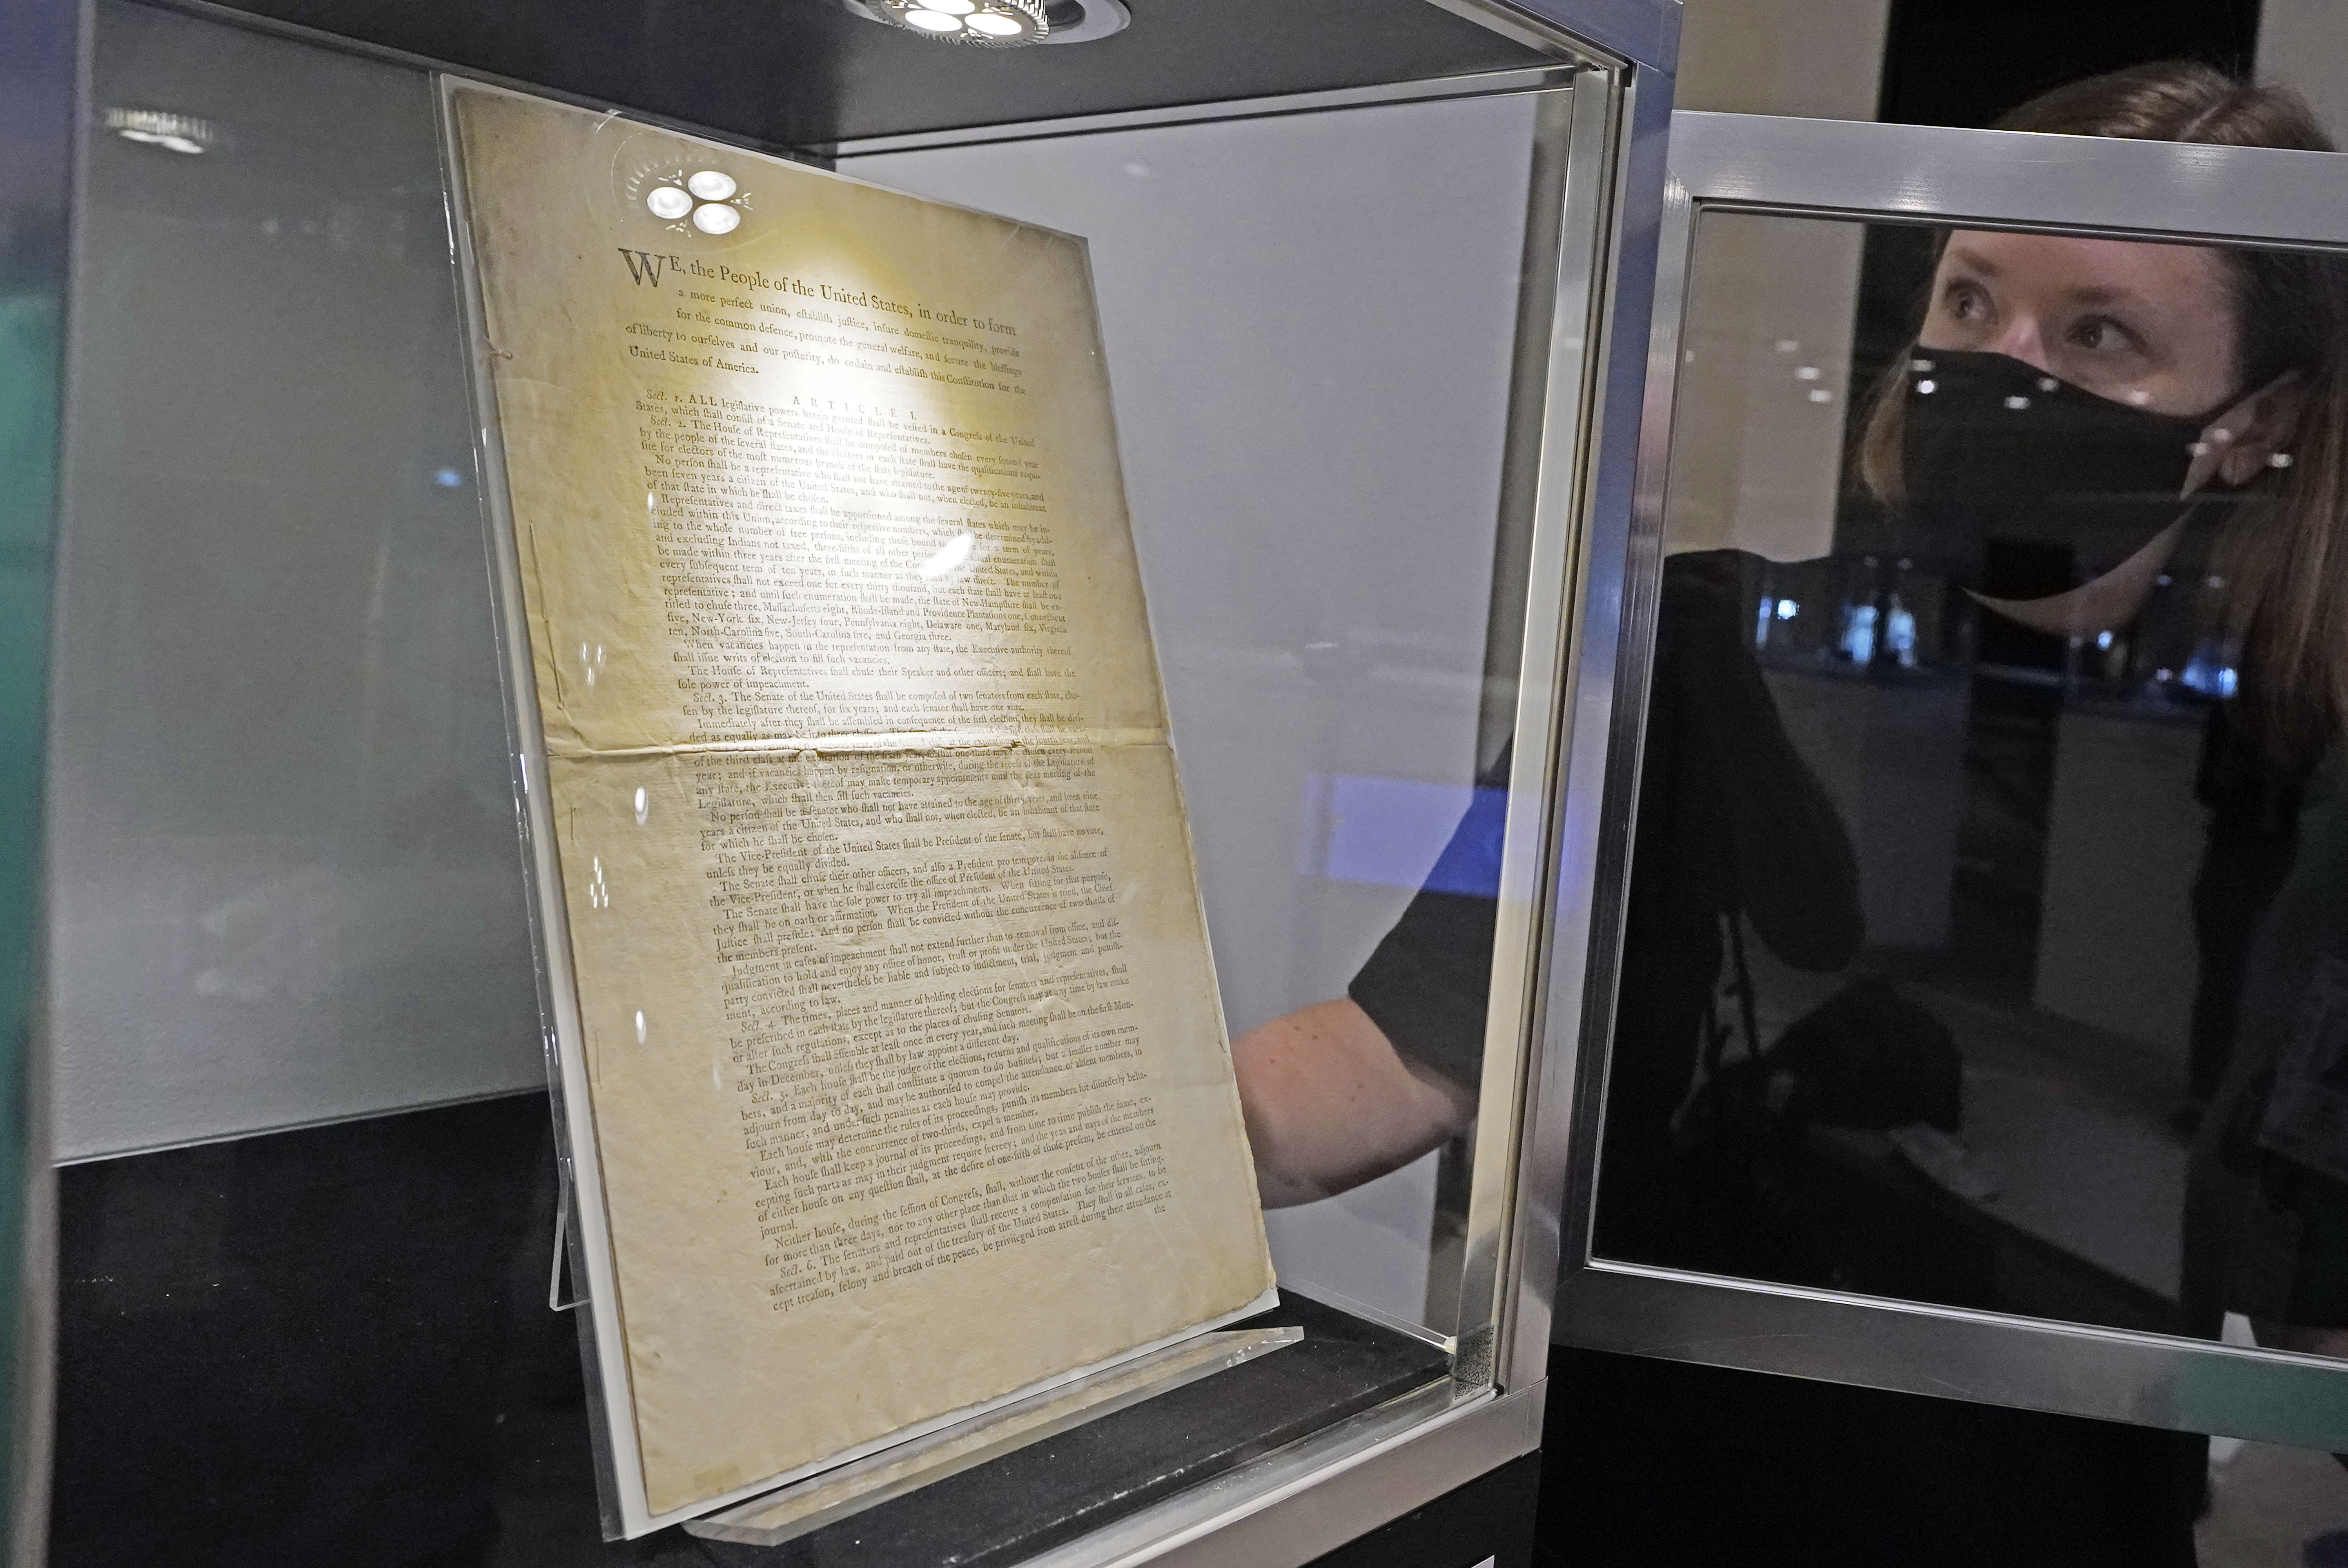 WE, the People of the United States, in order to form
a more perfect union, eſtabliſh juſtice, inſure domeſtic tranquility, provide
for the common defence, promote the general welfare, and ſecure the bleſſings
of liberty to ourſelves and our poſterity, do ordain and eſtabliſh this Conſtitution for the
United States of America.
ARTICLE I.
Sect. 1. ALL legiſlative powers herein granted ſhall be veſted in a Congreſs of the United
States, which ſhall conſiſt of a Senate and Houſe of Repreſentatives.
Sect. 2. The Houſe of Repreſentatives ſhall be compoſed of members choſen every ſecond year
by the people of the ſeveral ſtates, and the electors in each ſtate ſhall have the qualifications requi-
ſite for electors of the moſt numerous branch of the ſtate legiſlature.
No perſon ſhall be a repreſentative who ſhall not have attained to the age of twenty-five years, and
been ſeven years a citizen of the United States, and who ſhall not, when elected, be an inhabitant
of that ſtate in which he ſhall be choſen.
Repreſentatives and direct taxes ſhall be apportioned among the ſeveral ſtates which may be in-
cluded within this Union, according to their reſpective numbers, which ſhall be determined by add-
ing to the whole number of free perſons, including thoſe bound to for a term of years,
and excluding Indians not taxed, three-fifths of all other perſons enumeration ſhall
be made within three years after the firſt meeting of the the United States, and within
every ſubſequent term of ten years, in ſuch manner as they by law direct. The number of
repreſentatives ſhall not exceed one for every thirty thouſand, but each ſtate ſhall have at leaſt one
repreſentative; and until ſuch enumeration ſhall be made, the ſtate of New-Hampſhire ſhall be en-
titled to chuſe three, Maſſachuſetts eight, Rhode-Iſland and Providence Plantations one, Connecticut
five, New-York ſix, New-Jerſey four, Pennſylvania eight, Delaware one, Maryland ſix, Virginia
ten, North-Carolina five, South-Carolina five, and Georgia three.
When vacancies happen in the repreſentation from any ſtate, the Executive authority thereof
ſhall iſſue writs of election to fill ſuch vacancies.
The Houſe of Repreſentatives ſhall chuſe their Speaker and other officers; and ſhall have the
ſole power of impeachment.
Sect. 3. The Senate of the United States ſhall be compoſed of two ſenators from each ſtate, cho-
ſen by the legiſlature thereof, for ſix years; and each ſenator ſhall have one vote.
Immediately after they ſhall be aſſembled in conſequence of the firſt election, they ſhall be divi-
ded as equally as may be into three claſſes.
of the third claſs at the expiration of the ſixth year, ſo that one-third may be choſen every ſecond
year; and if vacancies happen by reſignation, or otherwiſe, during the receſs of the Legiſlature of
any ſtate, the Executive thereof may make temporary appointments until the next meeting of the
Legiſlature, which ſhall then fill ſuch vacancies.
No perſon ſhall be a ſenator who ſhall not have attained to the age of thirty years, and been nine
years a citizen of the United States, and who ſhall not, when elected, be an inhabitant of that ſtate
for which he ſhall be choſen.
The Vice-Preſident of the United States ſhall be Preſident of the ſenate, but ſhall have no vote,
unleſs they be equally divided.
The Senate ſhall chuſe their other officers, and alſo a Preſident pro tempore, in the abſence of
the Vice-Preſident, or when he ſhall exerciſe the office of Preſident of the United States.
The Senate ſhall have the ſole power to try all impeachments. When ſitting for that purpoſe,
they ſhall be on oath or affirmation. When the Preſident of the United States is tried, the Chief
Juſtice ſhall preſide: And no perſon ſhall be convicted without the concurrence of two-thirds of
the members preſent.
Judgment in caſes of impeachment ſhall not extend further than to removal from office, and diſ-
qualification to hold and enjoy any office of honor, truſt or profit under the United States; but the
party convicted ſhall nevertheleſs be liable and ſubject to indictment, trial, judgment and puniſh-
ment, according to law.
Sect. 4. The times, places and manner of holding elections for ſenators and repreſentatives, ſhall
be preſcribed in each ſtate by the legiſlature thereof; but the Congreſs may at any time by law make
or alter ſuch regulations, except as to the places of chuſing Senators.
The Congreſs ſhall aſſemble at leaſt once in every year, and ſuch meeting ſhall be on the firſt Mon-
day in December, unleſs they ſhall by law appoint a different day.
Sect. 5. Each houſe ſhall be the judge of the elections, returns and qualifications of its own mem-
bers, and a majority of each ſhall conſtitute a quorum to do buſineſs; but a ſmaller number may
adjourn from day to day, and may be authoriſed to compel the attendance of abſent members, in
ſuch manner, and under ſuch penalties as each houſe may provide.
Each houſe may determine the rules of its proceedings, puniſh its members for diſorderly beha-
viour, and, with the concurrence of two-thirds, expel a member.
Each houſe ſhall keep a journal of its proceedings, and from time to time publiſh the ſame, ex-
cepting ſuch parts as may in their judgment require ſecrecy; and the yeas and nays of the members
of either houſe on any queſtion ſhall, at the deſire of one-fifth of thoſe preſent, be entered on the
journal.
Neither houſe, during the ſeſſion of Congreſs, ſhall, without the conſent of the other, adjourn
for more than three days, nor to any other place than that in which the two houſes ſhall be ſitting.
Sect. 6. The ſenators and repreſentatives ſhall receive a compenſation for their ſervices, to be
aſcertained by law, and paid out of the treaſury of the United States. They ſhall in all caſes, ex-
cept treaſon, felony and breach of the peace, be privileged from arreſt during their attendance at
the